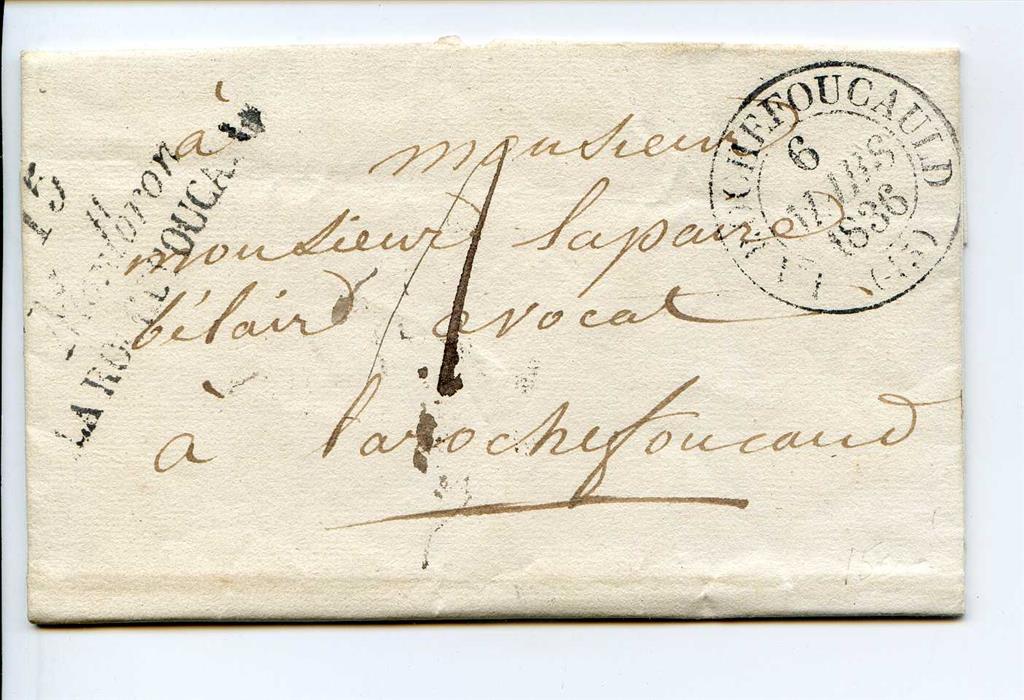 15
Montbron
LA ROCHEFOUCA
LA ROCHEFOUCAULD
6
MARS
1836
(15)
à
monsieur
monsieur lapaire
bélair avocat
à larochefoucaud
1